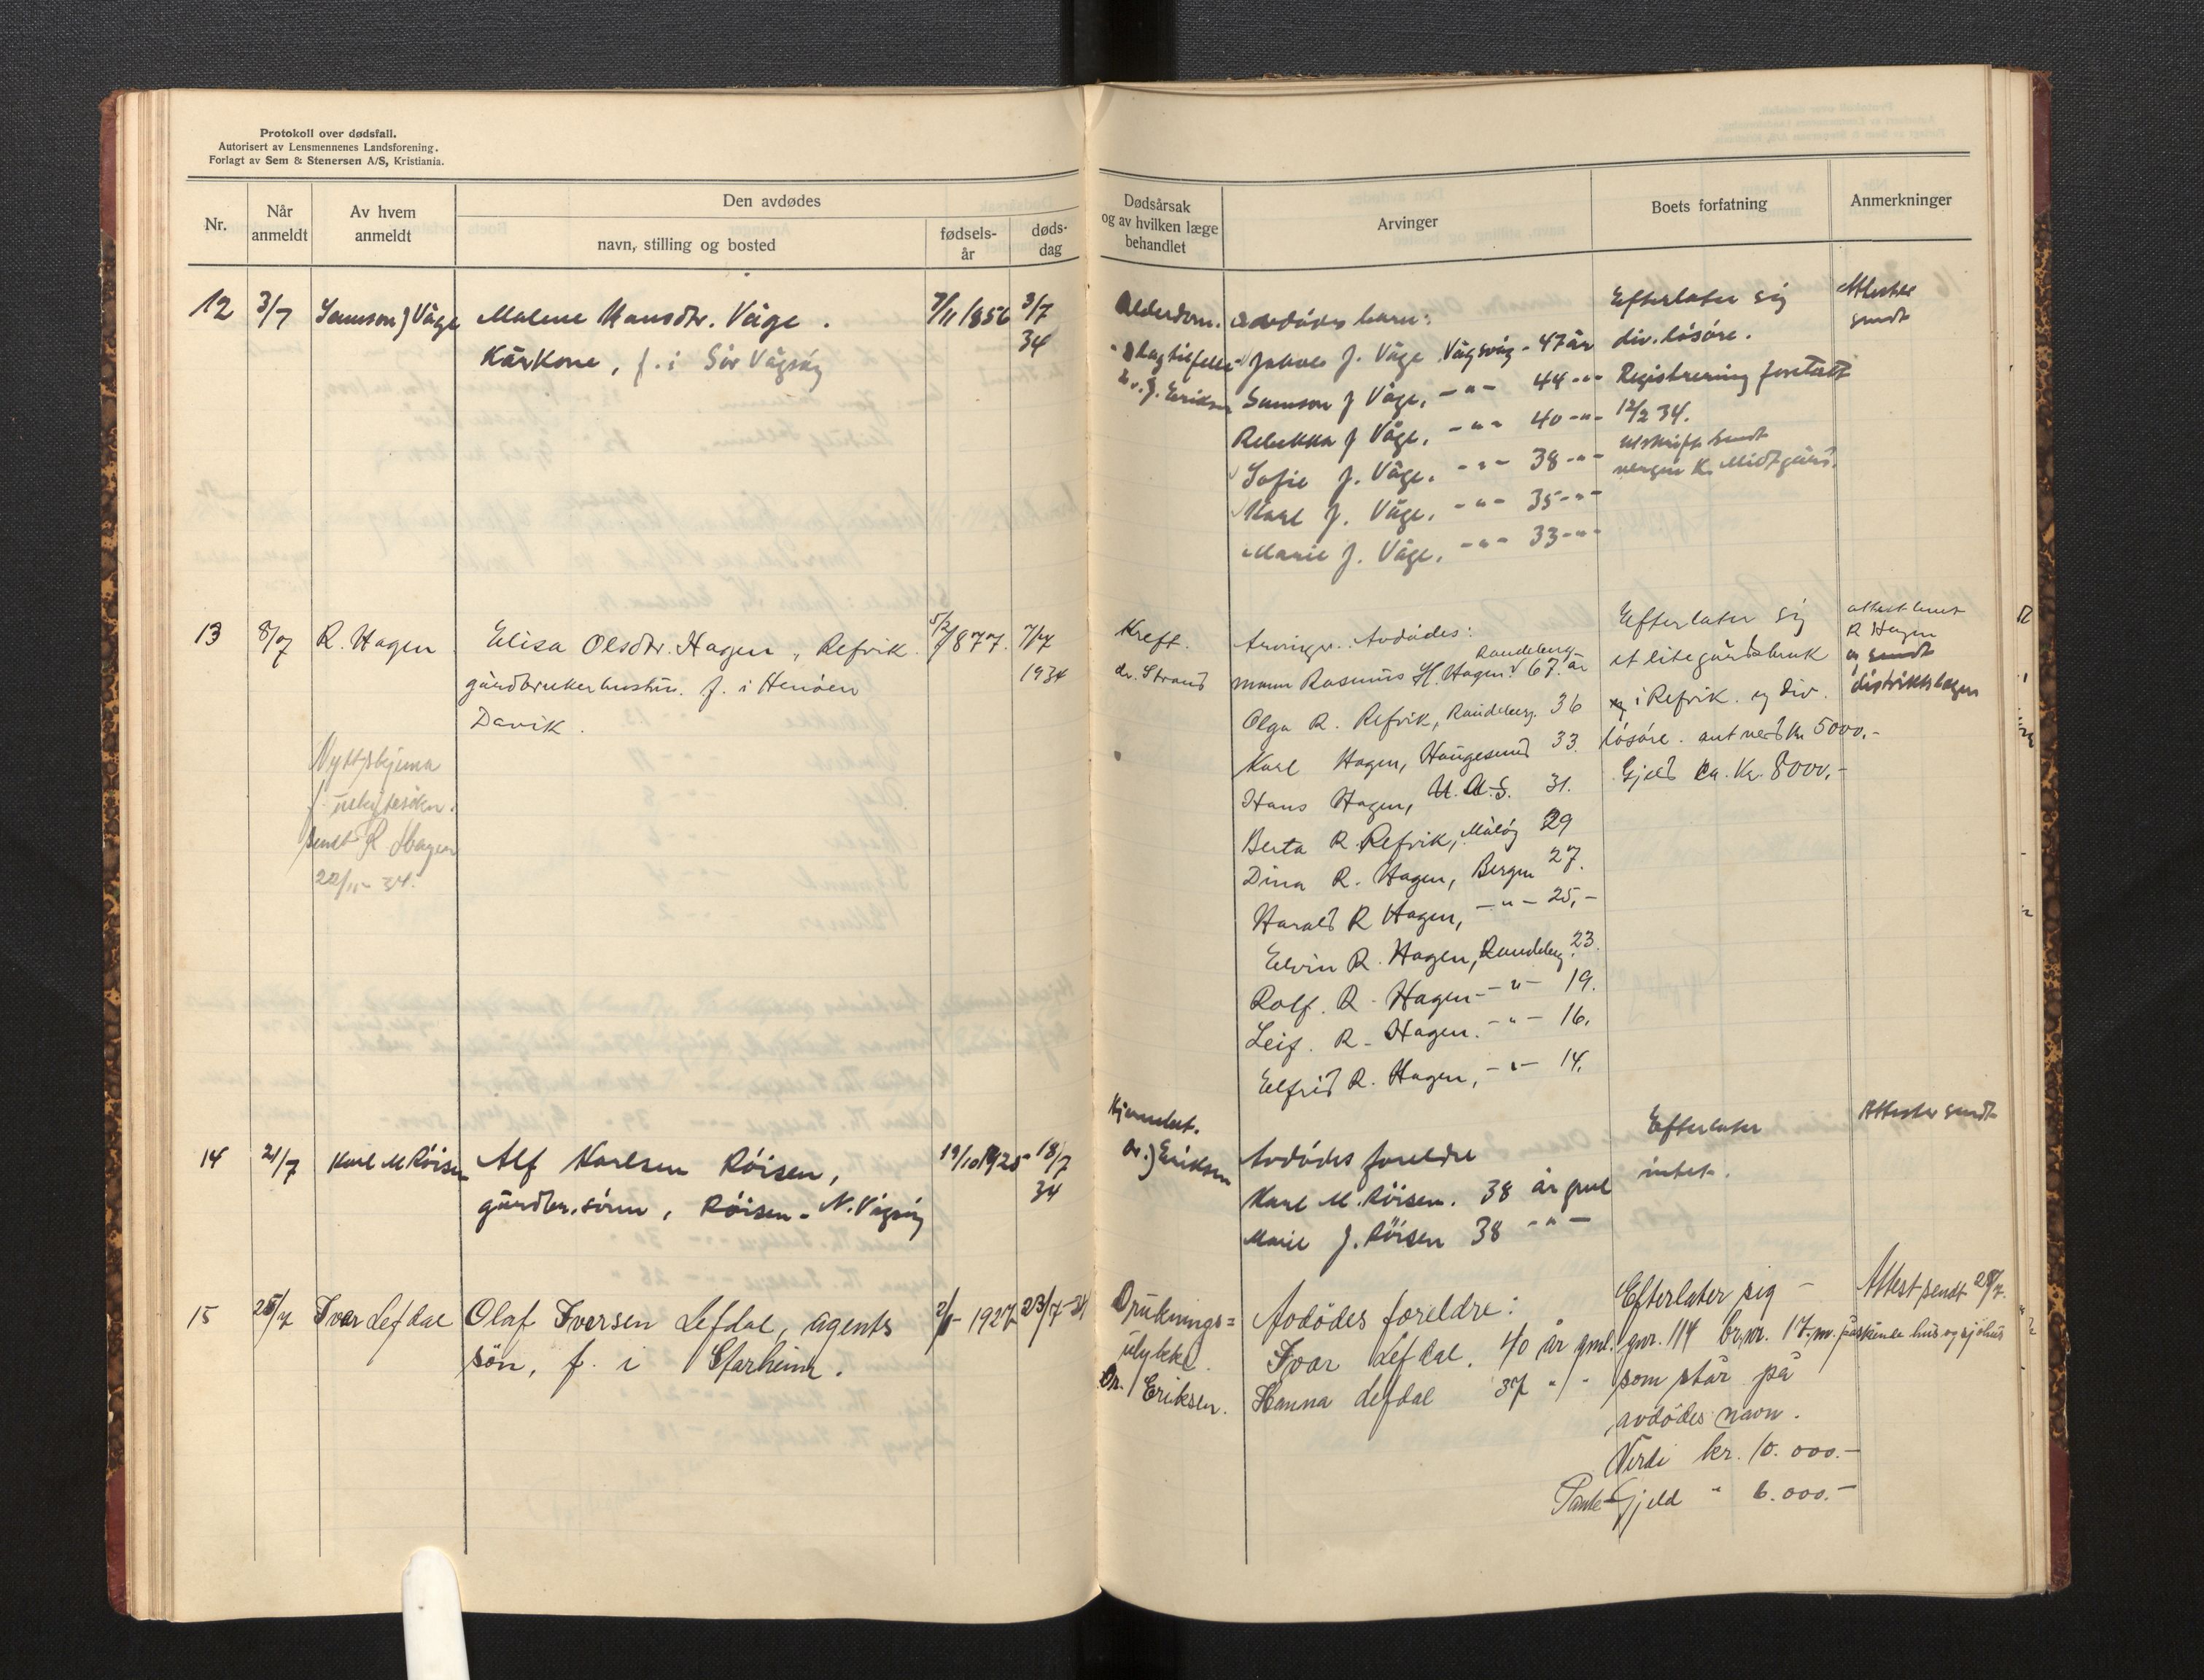 Protokoll over dødsfall.
Autorisert av Lensmennenes Landsforening.
Forlagt av Sem & Stenersen A/S, Kristiania.
Nr.
Når anmeldt
Av hvem anmeldt
Den avdødes
navn, stilling og bosted
fødsels-
år
døds-
dag
Dødsårsak
og av hvilken læge
behandlet
Arvinger
Boets forfatning
Anmerkninger
12 3/7 Samson J Våge Malene Hansdtr. Våge. 7/11 1856 3/7
Kårkone, f. i Sør Vågsøy 34
Alderdom.
slagtilfelle
Dr. J. Eriksen
avdødes barn:
Jakob J. Våge Vågsvåg - 47 år
Samson J Våge, -"- 44 -"-
Rebekka J Våge, -"- 40 -"-
Sofie J. Våge. -"- 38 -"-
Karl J. Våge. -"- 35 -"-
Marie J. Våge, -"- 33 -"-
Efterlater sig
div. løsøre.
Registrering foretatt
12/2 34.
utskrift sendt
K. Midtgård.
Attester
sendt
13 8/7 R. Hagen Elisa Olsdtr. Hagen, Refvik. 5/2 1877. 7/7
gårdbrukerhustru. f. i Henøen 1934
Davik.
f. uskiftesøkn.
sendt R Hagen
22/11-34.
Kreft.
dr. Strand
Arvinger. Avdødes:
Raudeberg
mann Rasmus H. Hagen. 67. år
Olga R. Refvik, Raudeberg. 36
Karl Hagen, Haugesund 33.
Hans Hagen, U.S.A. 31.
Berta R. Refvik, Måløy 29
Dina R. Hagen, Bergen 27.
Harald R Hagen, -"- 25,-
Edvin R. Hagen, Raudeberg 23.
Rolf. R. Hagen -"- 19.
Leif. R. Hagen. -"- 16.
Elfrid R. Hagen, -"- 14.
Efterlater sig
et lite gårdsbruk
i Refvik. og div.
løsøre. ant verd kr 5000,-
Gjeld ca. Kr. 8000,-
R Hagen
og sendt
distriktslægen
14 21/7 Karl M Røisen Alf Karlsen Røisen, 19/10 1925 18/7
gårdbr.sønn, Røisen - N. Vågsøy 34
Dr. J Eriksen
Avdødes foreldre
Karl M. Røisen. 38 år gml
Marie J. Røisen 38 -"-
Efterlater
intet.
Attester sendt
15 25/7 Ivar Lefdal Olaf Iversen Lefdal, agents 1927 23/7-34
søn, f. i Starheim.
Druknings=
ulykke.
Dr. Eriksen.
Avdödes foreldre:
Ivar Lefdal. 40 år gml.
Hanna Lefdal 37 " -
Efterlater sig -
gnr. 114 br.nr. 17. m. påstående hus og sjøhus
som står på
avdödes navn.
Verdi kr. 10.000.-
Pante-Gjeld " 6.000.-
Attest sendt 28/7.